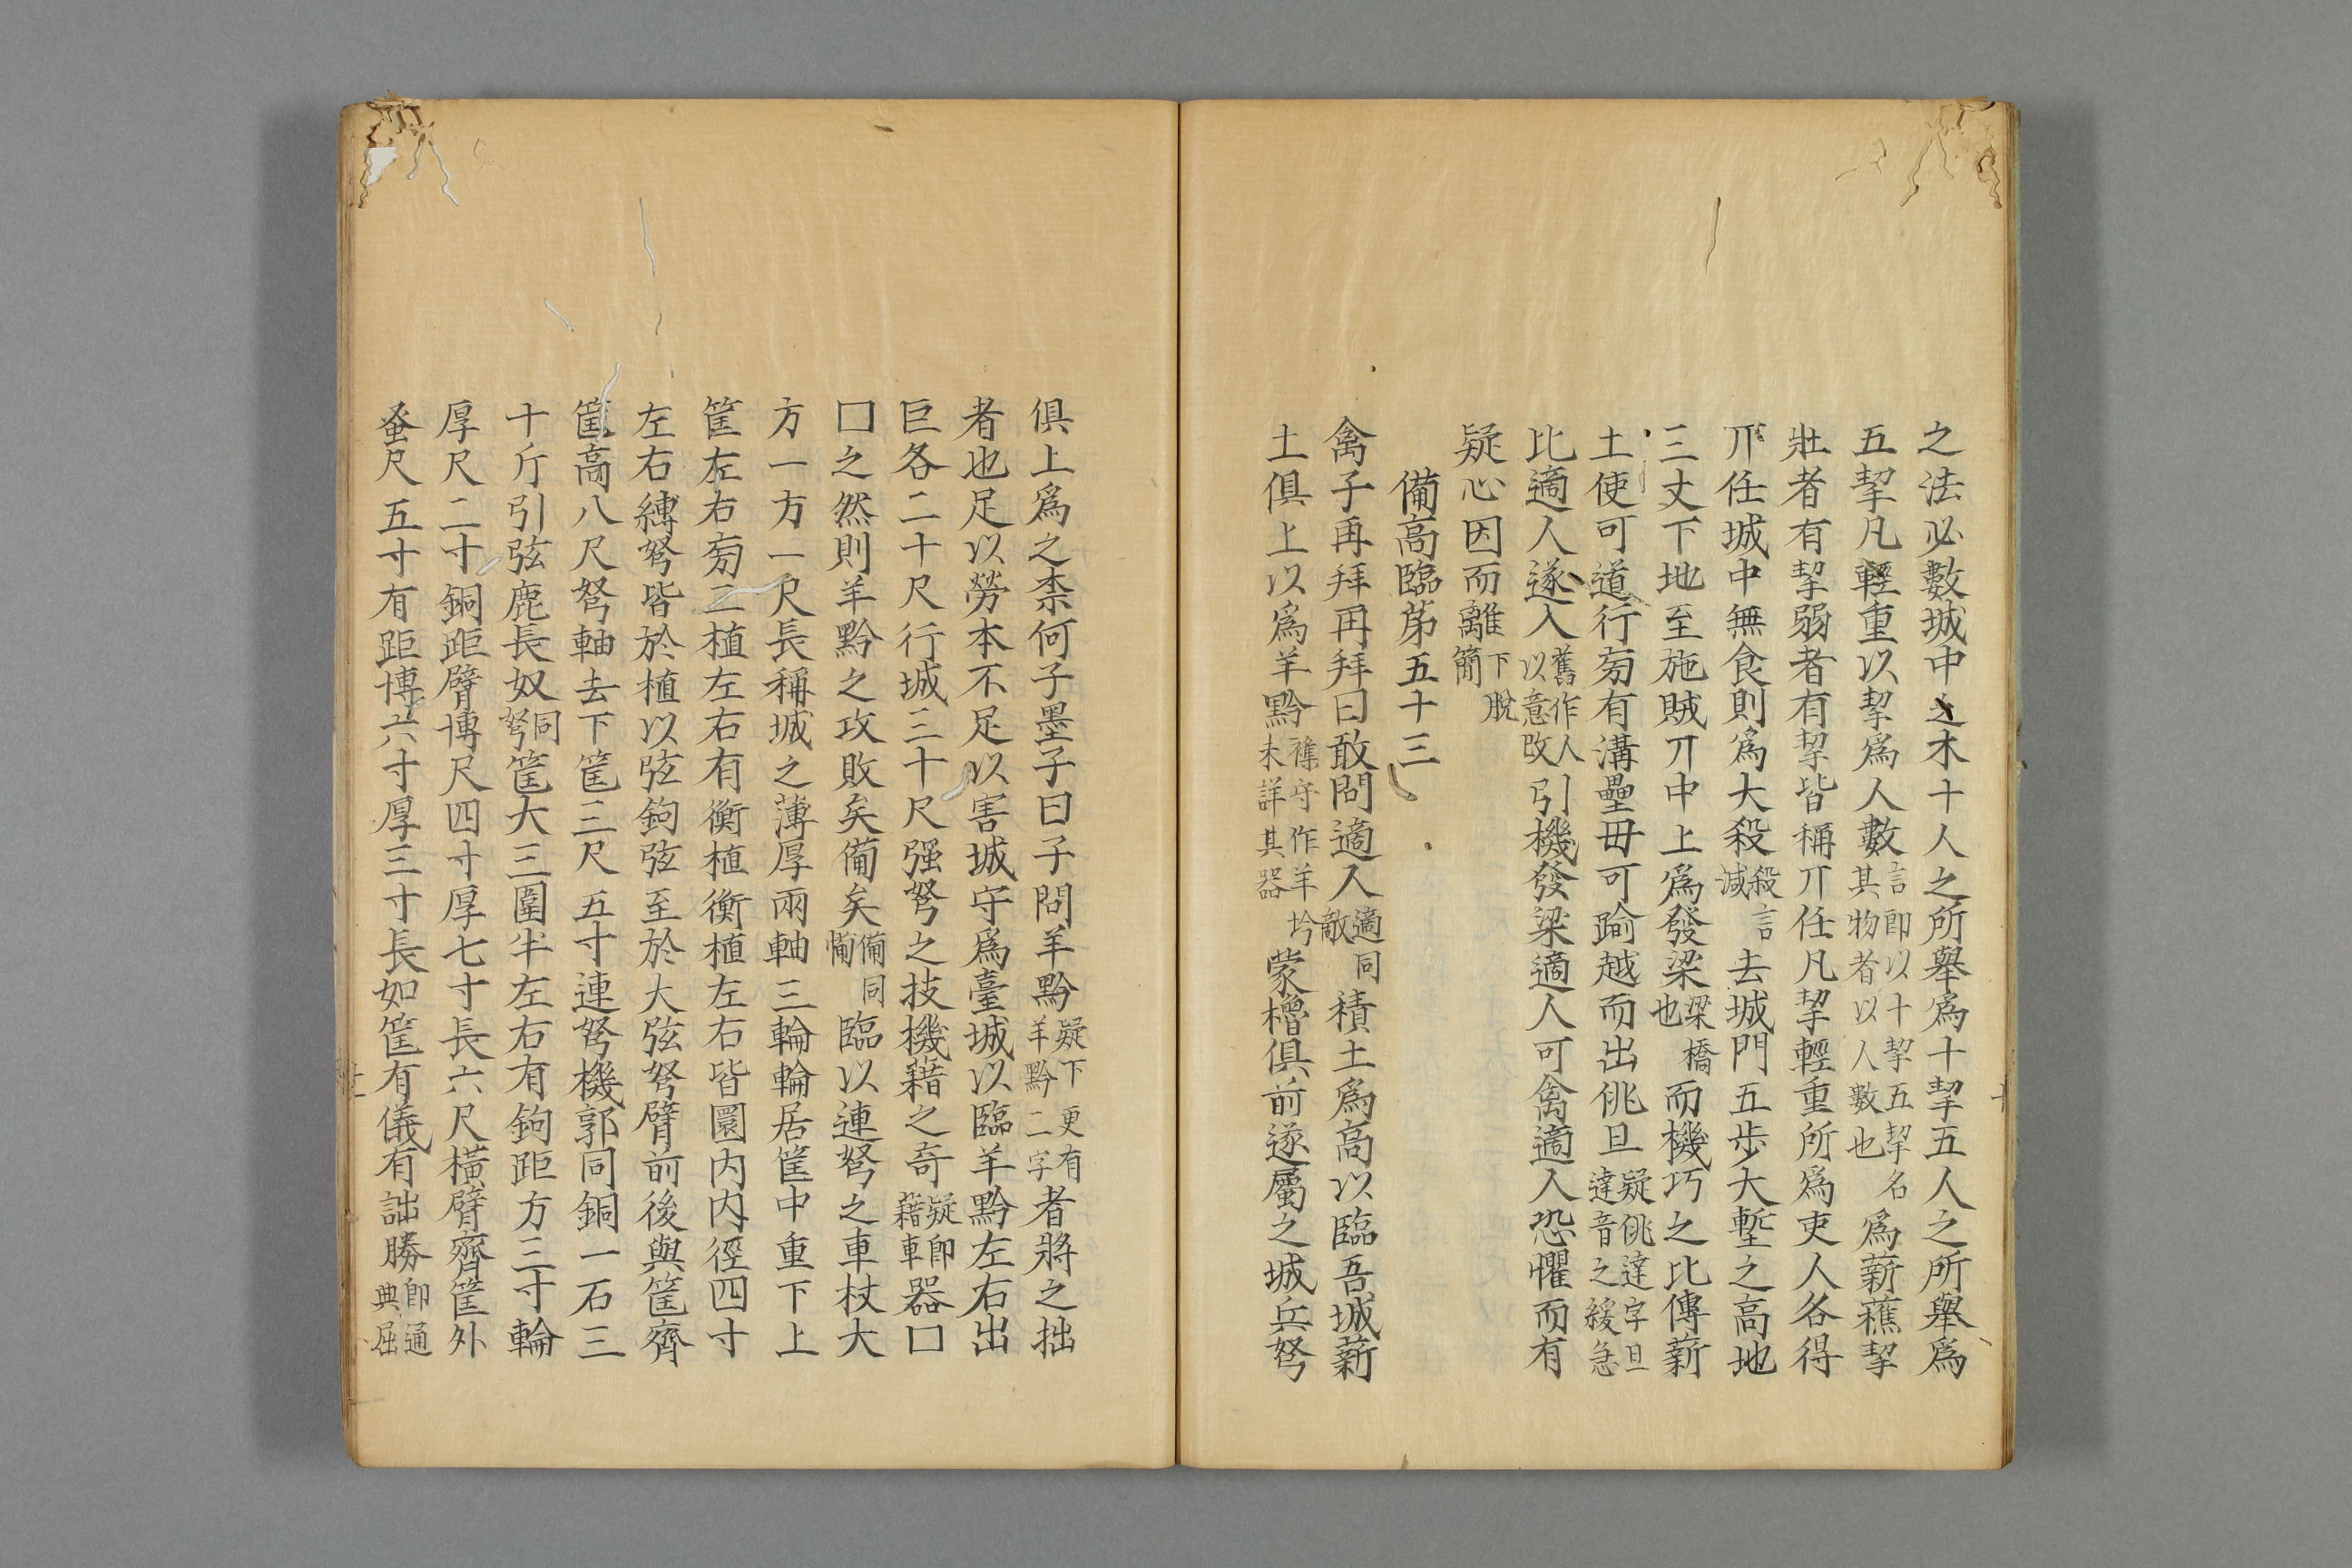 之法必數城中之木十人之所舉爲十挈五人之所舉爲
五挈凡輕重以挈爲人數言卽以十挈五挈名其物者以人數也爲薪蕉挈
壯者有挈弱者有挈皆稱丌任凡挈輕重所爲吏人各得
丌任城中無食則爲大殺殺言減去城門五步大塹之高地
三丈下地至施賊丌中上爲發梁梁橋也而機巧之比傳薪
土使可道行芻有溝壘毋可踰越而出佻旦疑佻達字旦達音之緩急
比適人遂入舊作人以意改引機發梁適人可禽適人恐懼而有
疑心因而離下脫簡
備高臨苐五十三
禽子再拜再拜曰敢問適人適同敵積土爲高以臨吾城薪
土俱上以爲羊黔襍守作羊坽未詳其器蒙櫓俱前遂屬之城兵弩
俱上爲之柰何子墨子曰子問羊黔疑下更有羊黔二字者將之拙
者也足以勞本不足以害城守爲臺城以臨羊黔左右出
巨各二十尺行城三十尺强弩之技機藉之奇疑卽藉車器囗
囗之然則羊黔之攻敗矣備矣備同憊臨以連弩之車杖大
方一方一尺長稱城之薄厚兩軸三輪輪居筐中重下上
筐左右芻二植左右有衡植衡植左右皆圜内内徑四寸
左右縛弩皆於植以弦鉤弦至於大弦弩臂前後與筐齊
筐高八尺弩軸去下筐三尺五寸連弩機郭同銅一石三
十斤引弦鹿長奴同弩筐大三圍半左右有鉤距方三寸輪
厚尺二寸銅距臂博尺四寸厚七寸長六尺横臂齊筐外
蚤尺五寸有距博六寸厚三寸長如筐有儀有詘勝卽通典屈